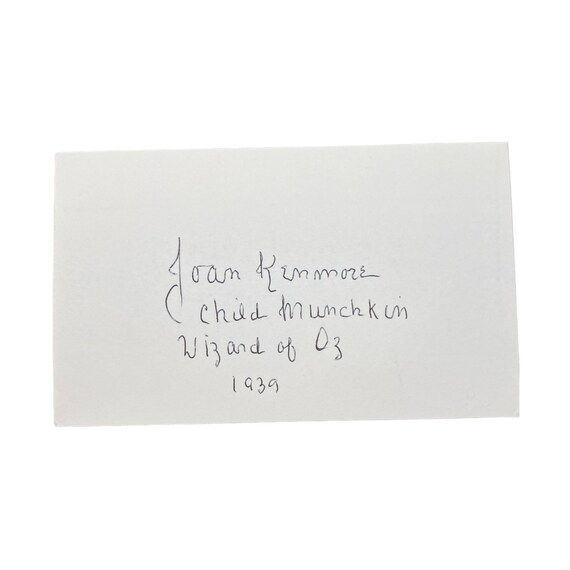 Joan Kenmore
Child Munchkin
Wizard of Oz
1939